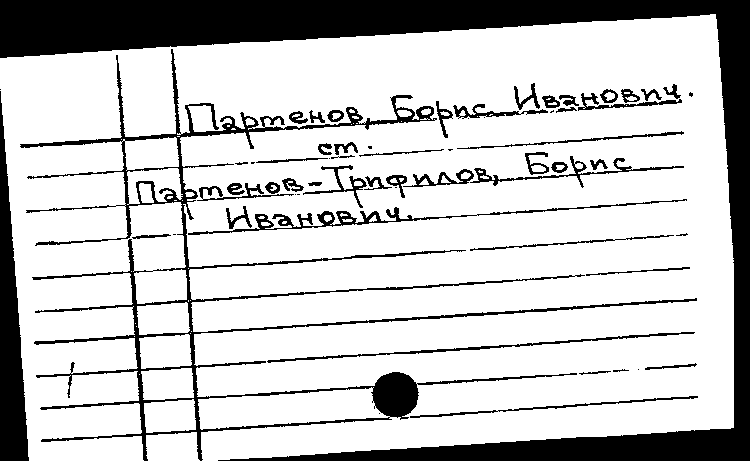 Партенов, Борис Иванович.
ст.
Партенов-Трифилов, Борис
Иванович.